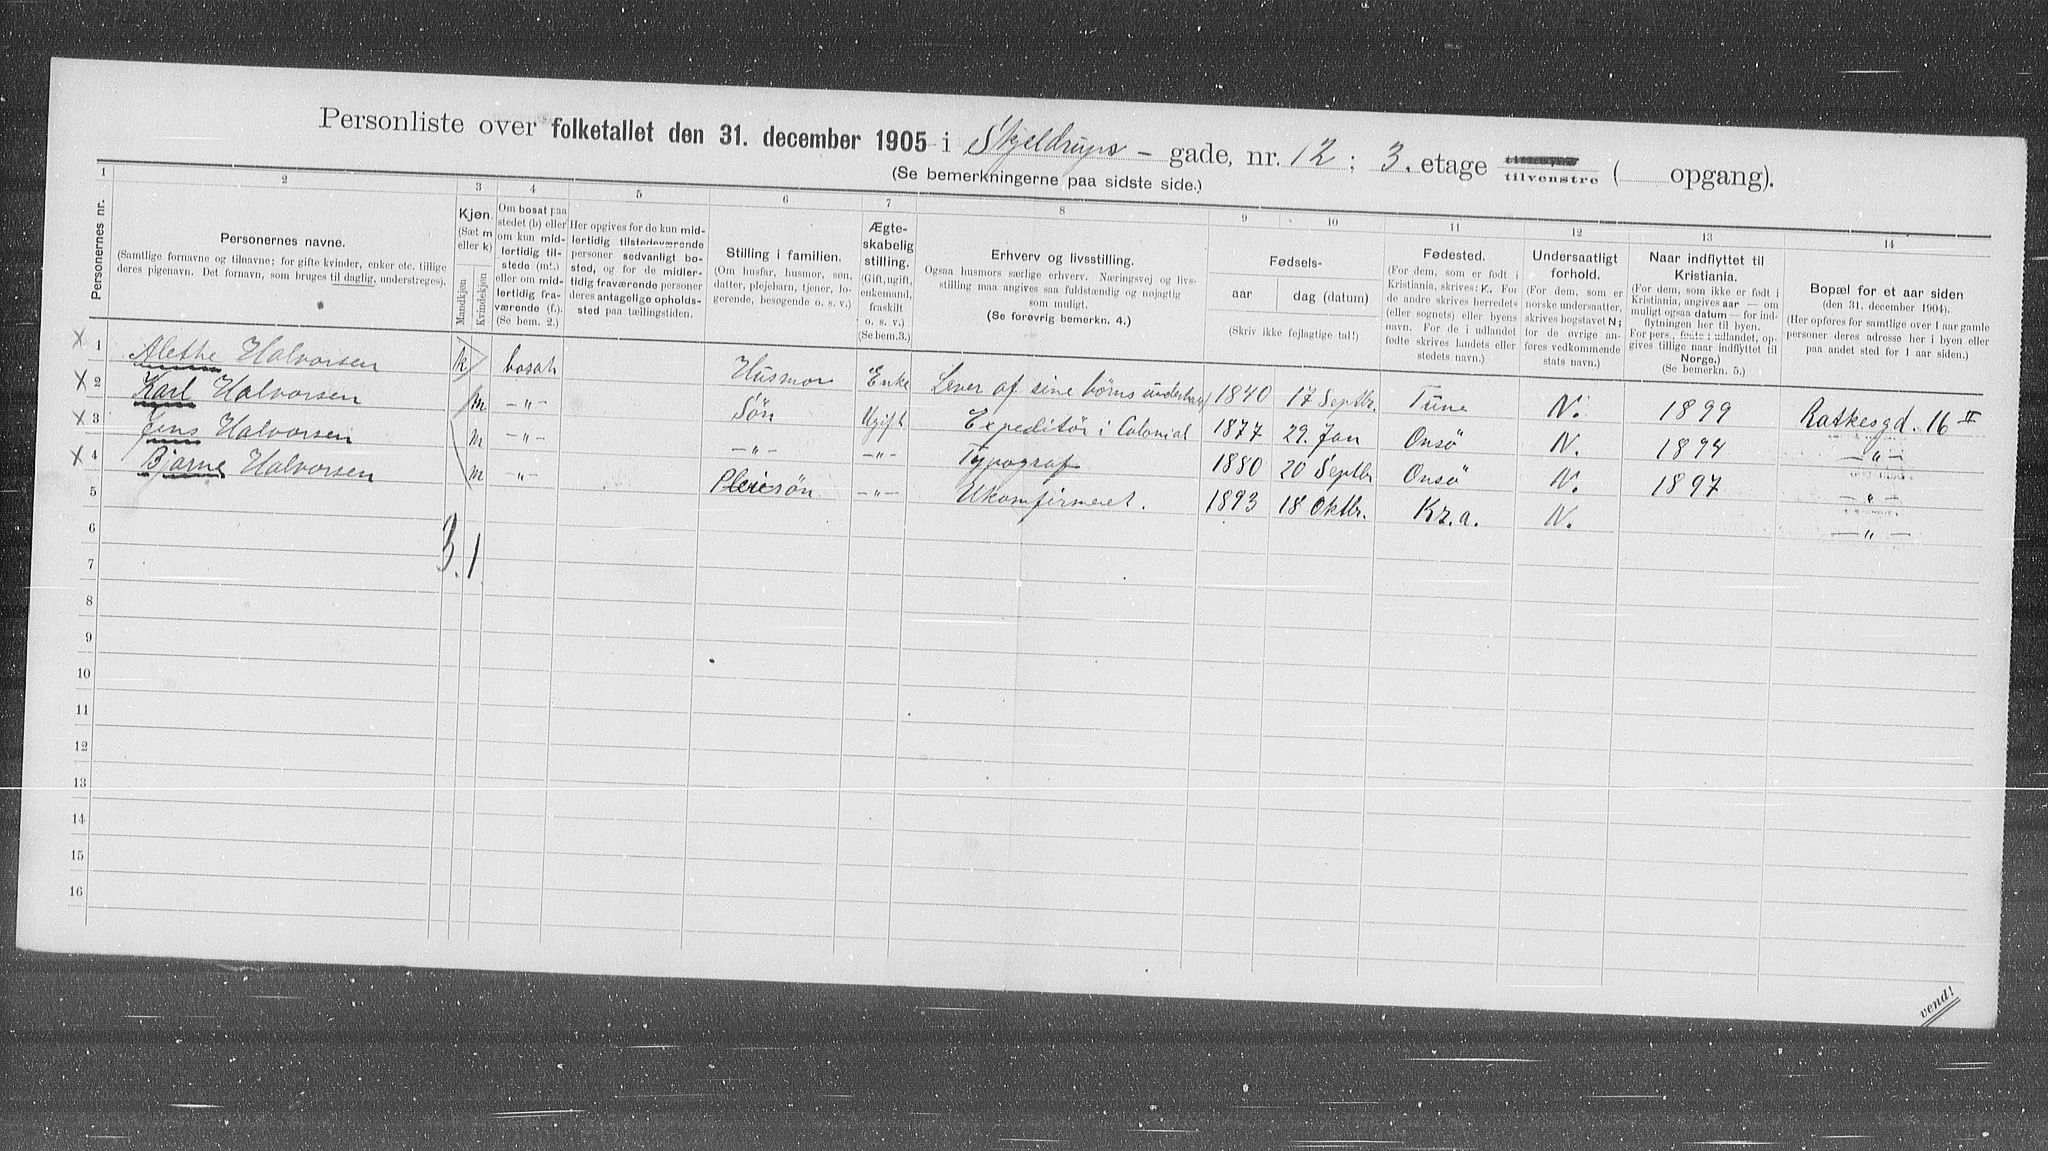 Personliste over folketallet den 31. december 1905 i Skjeldrups - gade, nr. 12 ; 3. etage tilvenstre ( opgang).
(Se bemerkningerne paa sidste side.)
1 2 3 4 5 6 7 8 9 10 11 12 13 14
Personernes nr.
Personernes navne.
(Samtlige fornavne og tilnavne; for gifte kvinder, enker etc. tillige
deres pigenavn. Det fornavn, som bruges til daglig, understreges).
Kjøn.
(Sæt m
eller k)
Mandkjøn
Kvindekjøn
Om bosat paa
stedet (b) eller
om kun mid-
lertidig til-
stede (mt.)
eller om mid-
lertidig fra-
værende (f.).
(Se bem. 2.)
Her opgives for de kun mid-
lertidig tilstedeværende
personer sedvanligt bo-
sted, og for de midler-
tidig fraværende personer
deres antagelige opholds-
sted paa tællingstiden.
Stilling i familien.
(Om husfar, husmor, søn,
datter, plejebarn, tjener, lo-
gerende, besøgende o. s. v.)
Ægte-
skabelig
stilling.
(Gift, ugift,
enkemand,
fraskilt
o. s. v.)
(Se bem.3.)
Erhverv og livsstilling.
Ogsaa husmors særlige erhverv. Næringsvej og livs-
stilling maa angives saa fuldstændig og nøjagtig
som muligt.
(Se forøvrig bemerkn. 4.)
Fødsels-
aar dag (datum)
(Skriv ikke fejlagtige tal!)
Fødested.
(For dem, som er født i
Kristiania, skrives: K. For
de andre skrives herredets
(eller sognets) eller byens
navn. For de i udlandet
fødte skrives landets eller
stedets navn.)
Undersaatligt
forhold.
(For dem, som er
norske undersaatter,
skrives bogstavet N;
for de øvrige an-
føres vedkommende
stats navn.)
Naar indflyttet til
Kristiania.
(For dem, som ikke er født i
Kristiania, angives aar — om
muligt ogsaa datum — for ind-
flytningen her til byen.
For pers., fødte i udlandet, op-
gives tillige naar indflyttet til
Norge.)
(Se bemerkn. 5.)
Bopæl for et aar siden
(den 31. december 1904).
(Her opføres for samtlige over 1 aar gamle
personer deres adresse her i byen eller
paa andet sted for 1 aar siden.)
X 1 Alethe Halvorsen k bosat Husmor Enke Lever af sine børns underhold 1840 17 Septbr. Tune N. 1899 Ratkesgd. 16 II
X 2 Karl Halvorsen m —"— Søn Ugift Expeditør i Colonial 1877 29. Jan Onsö N. 1894 —"—
X 3 Jens Halvorsen m —"— —"— —"— Typograf 1880 20 Septbr Onsö N. 1897 —"—
X 4 Bjarne Halvorsen m —"— Pleiesøn —"— Ukonfirmeret. 1893 18 Oktbr. Kr.a. N. —"—
5
6
3. 1
7
8
9
10
11
12
13
14
15
16
vend!